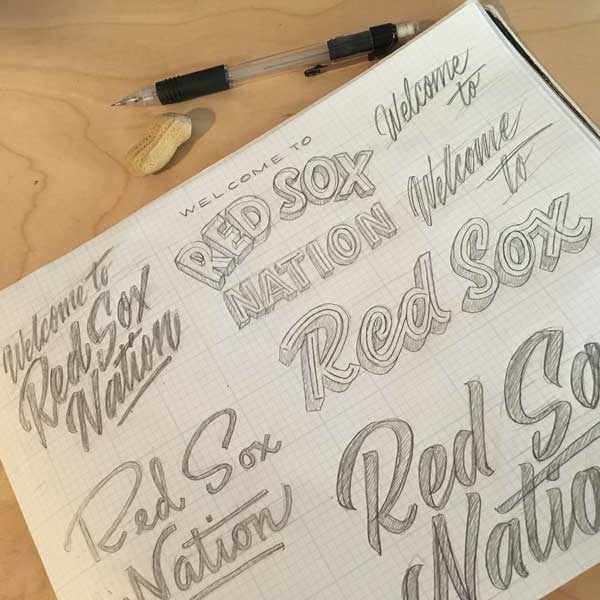 Welcome
to
WELCOME TO
RED SOX
NATION
Welcome
to
Red Sox
Welcome to
Red Sox
Nation
Red Sox
Nation
Red So
Natio